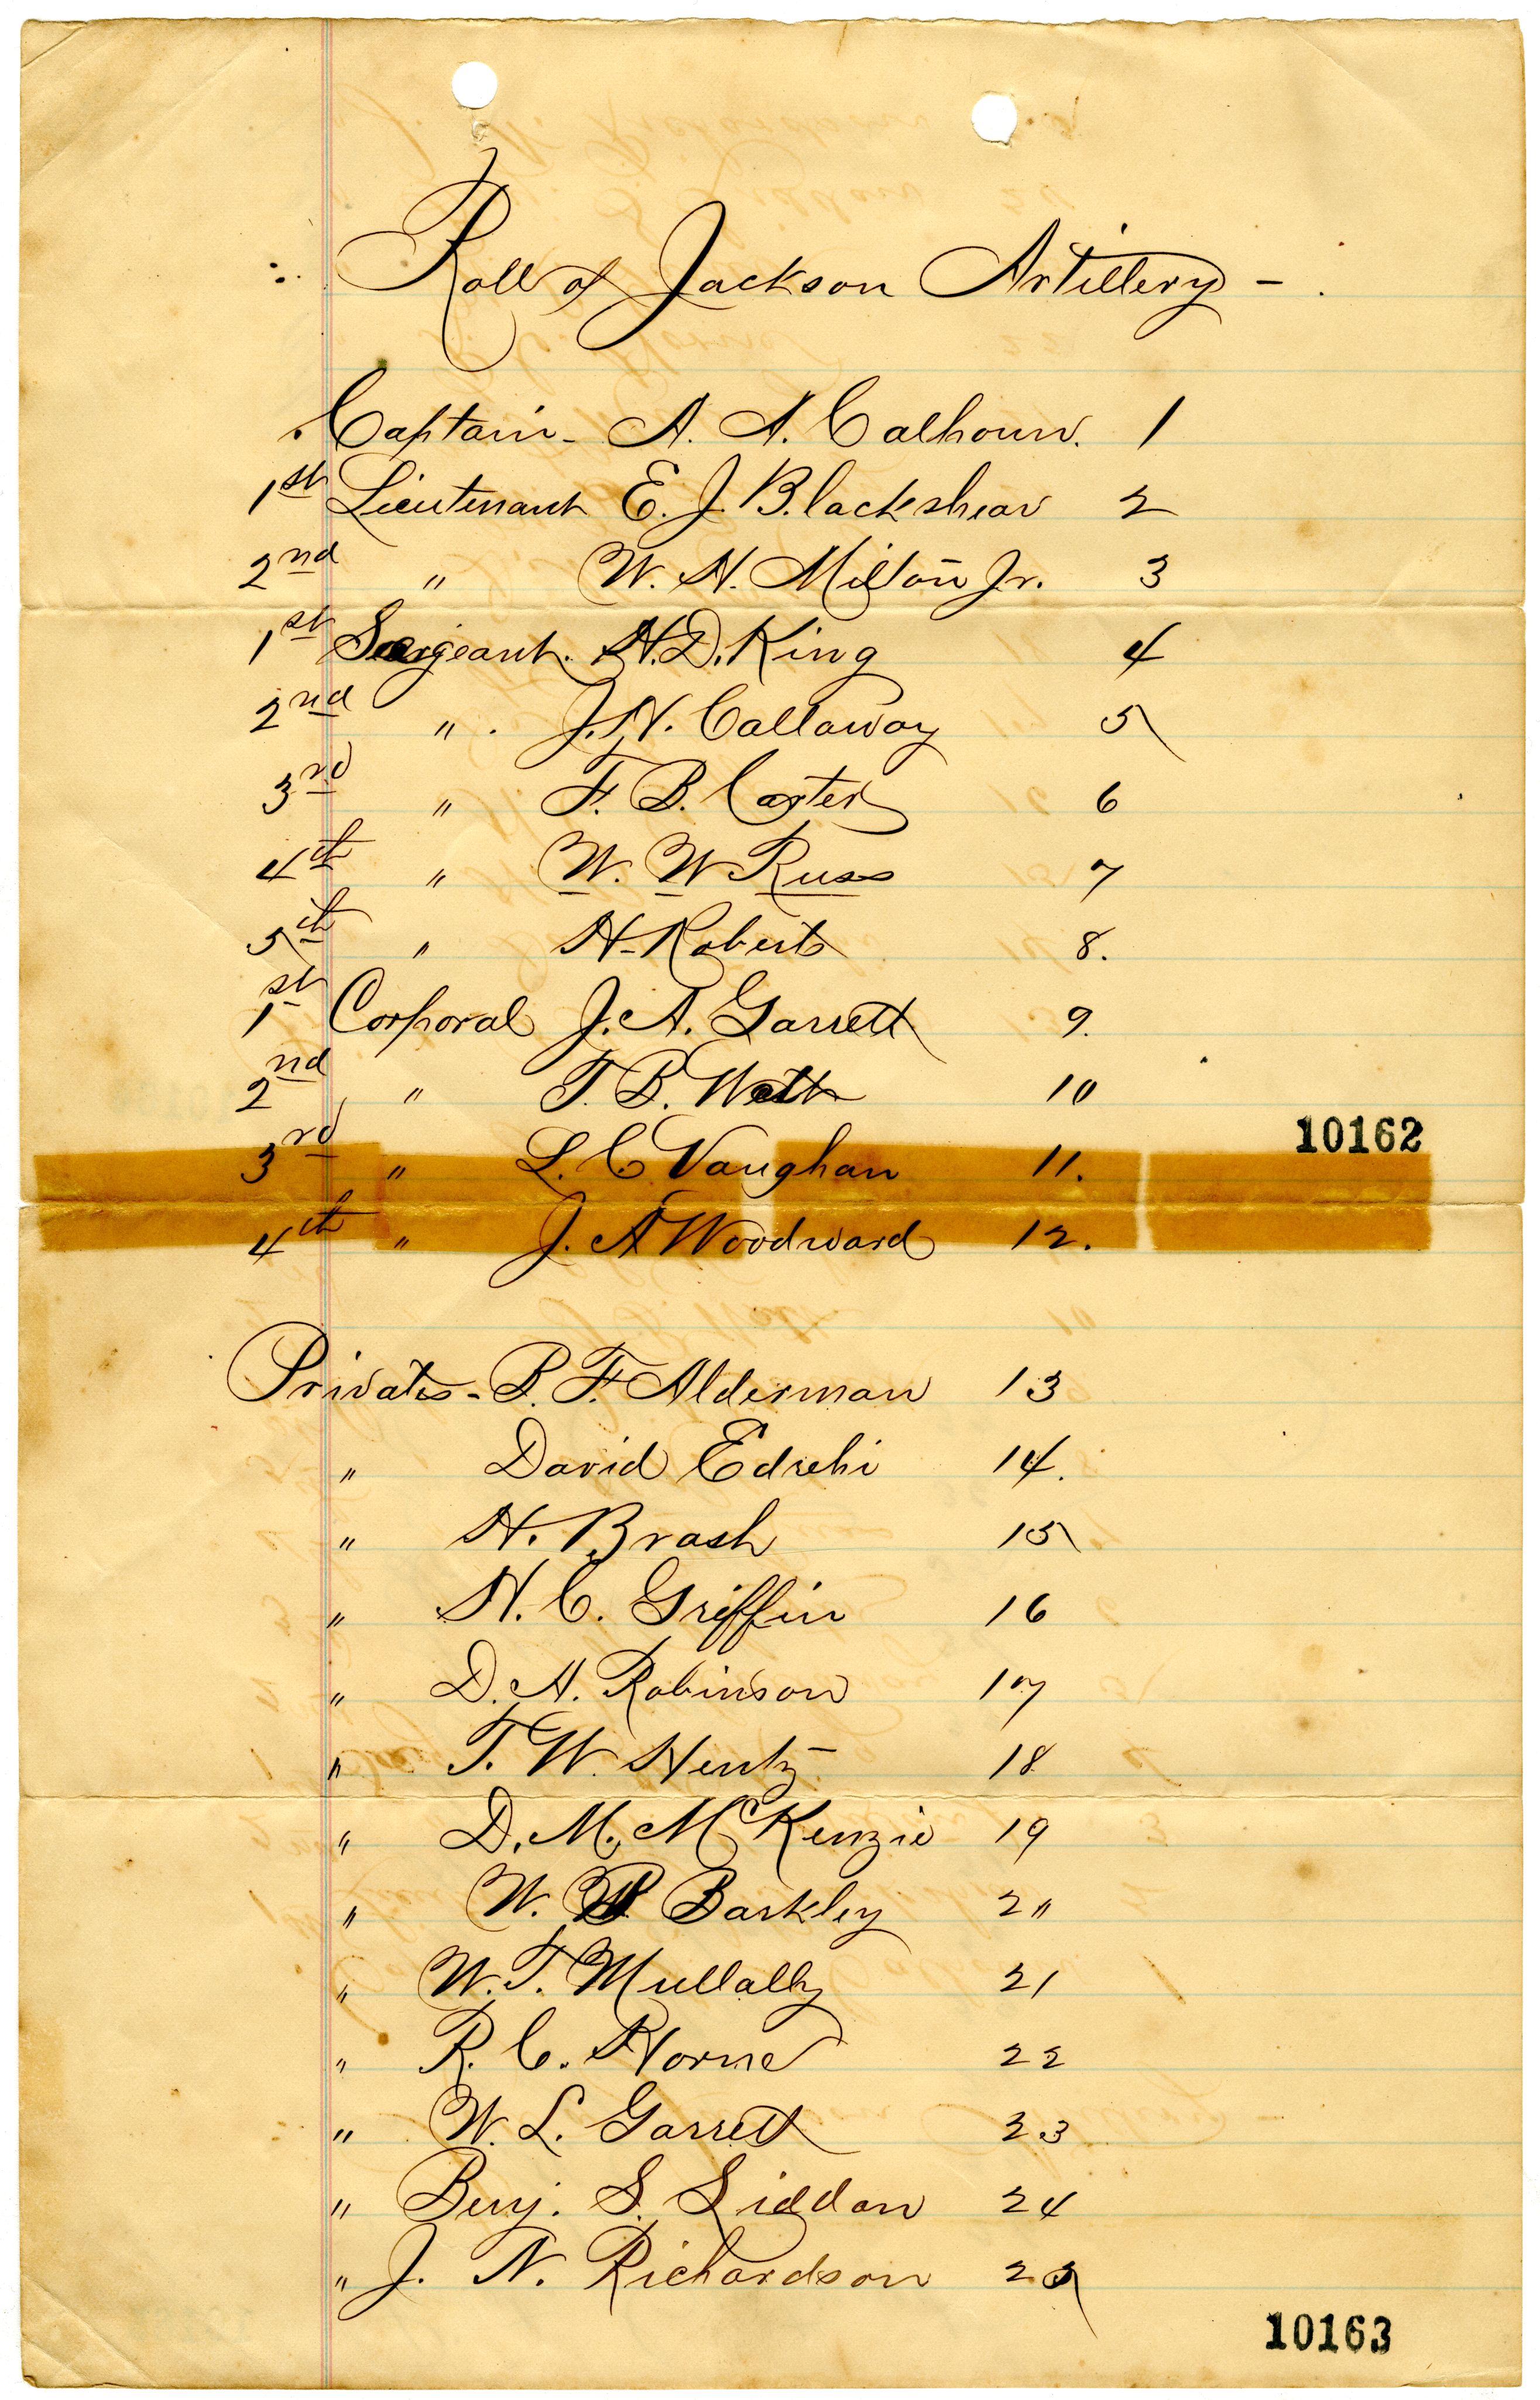 Roll of Jackson Artillery -
Captain - A. A. Calhoun. 1
1st Lieutenant E. J. Blackshear 2
2nd " W. H. Milton Jr. 3
1st Sergeant. H. D. King 4
2nd " . J. N. Callaway 5
3rd " F. B. Carter 6
4th " W. W Russ 7
5th " H- Roberts 8.
1st Corporal J. A. Garrett 9.
2nd " T. B. Watts 10
3rd " L. C. Vaughan 11.
4th " J. A Woodward 12.
Privates - B. F. Alderman 13
" David Edrehi 14.
" H. Brash 15
" H. C. Griffin 16
" D. A. Robinson 17
" T. W. Hentz 18
" D. M. McKenzie 19
" W. Barkley 20
" W. T. Mullally 21
" R. C. Horne 22
" W. L. Garrett 23
" Benj. S. Liddon 24
" J. N. Richardson 25
10162
10163